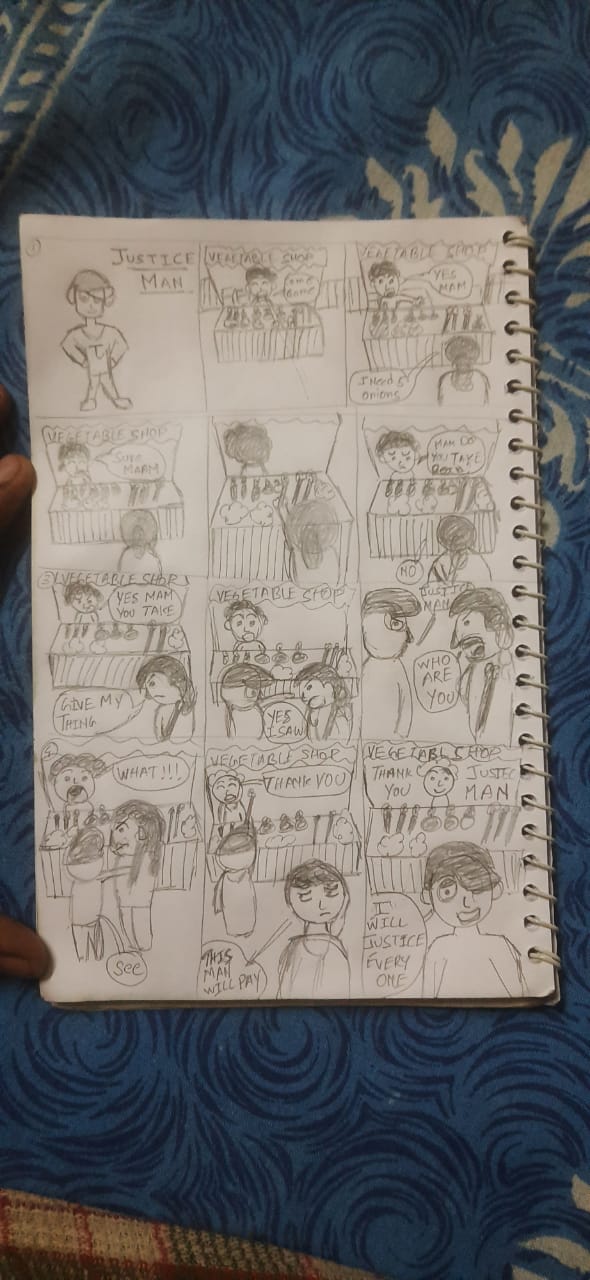 1
JUSTICE
MAN
VEGETABLE SHOP
VEGETABLE SHOP
YES
MAM
I NEED 5
ONIONS
VEGETABLE SHOP
SURE
MAAM
MAM DO
YOU TAKE
NO
2
VEGETABLE SHOP
YES MAM
YOU TAKE
GIVE MY
THING
VEGETABLE SHOP
YES
I SAW
JUSTIC
MAN
WHO
ARE
YOU
WHAT!!!
See
VEGETABLE SHOP
THANK YOU
THIS
MAN
WILL PAY
VEGETABL SHOP
THANK
YOU
JUSTEC
MAN
I
WILL
JUSTICE
EVERY
ONE